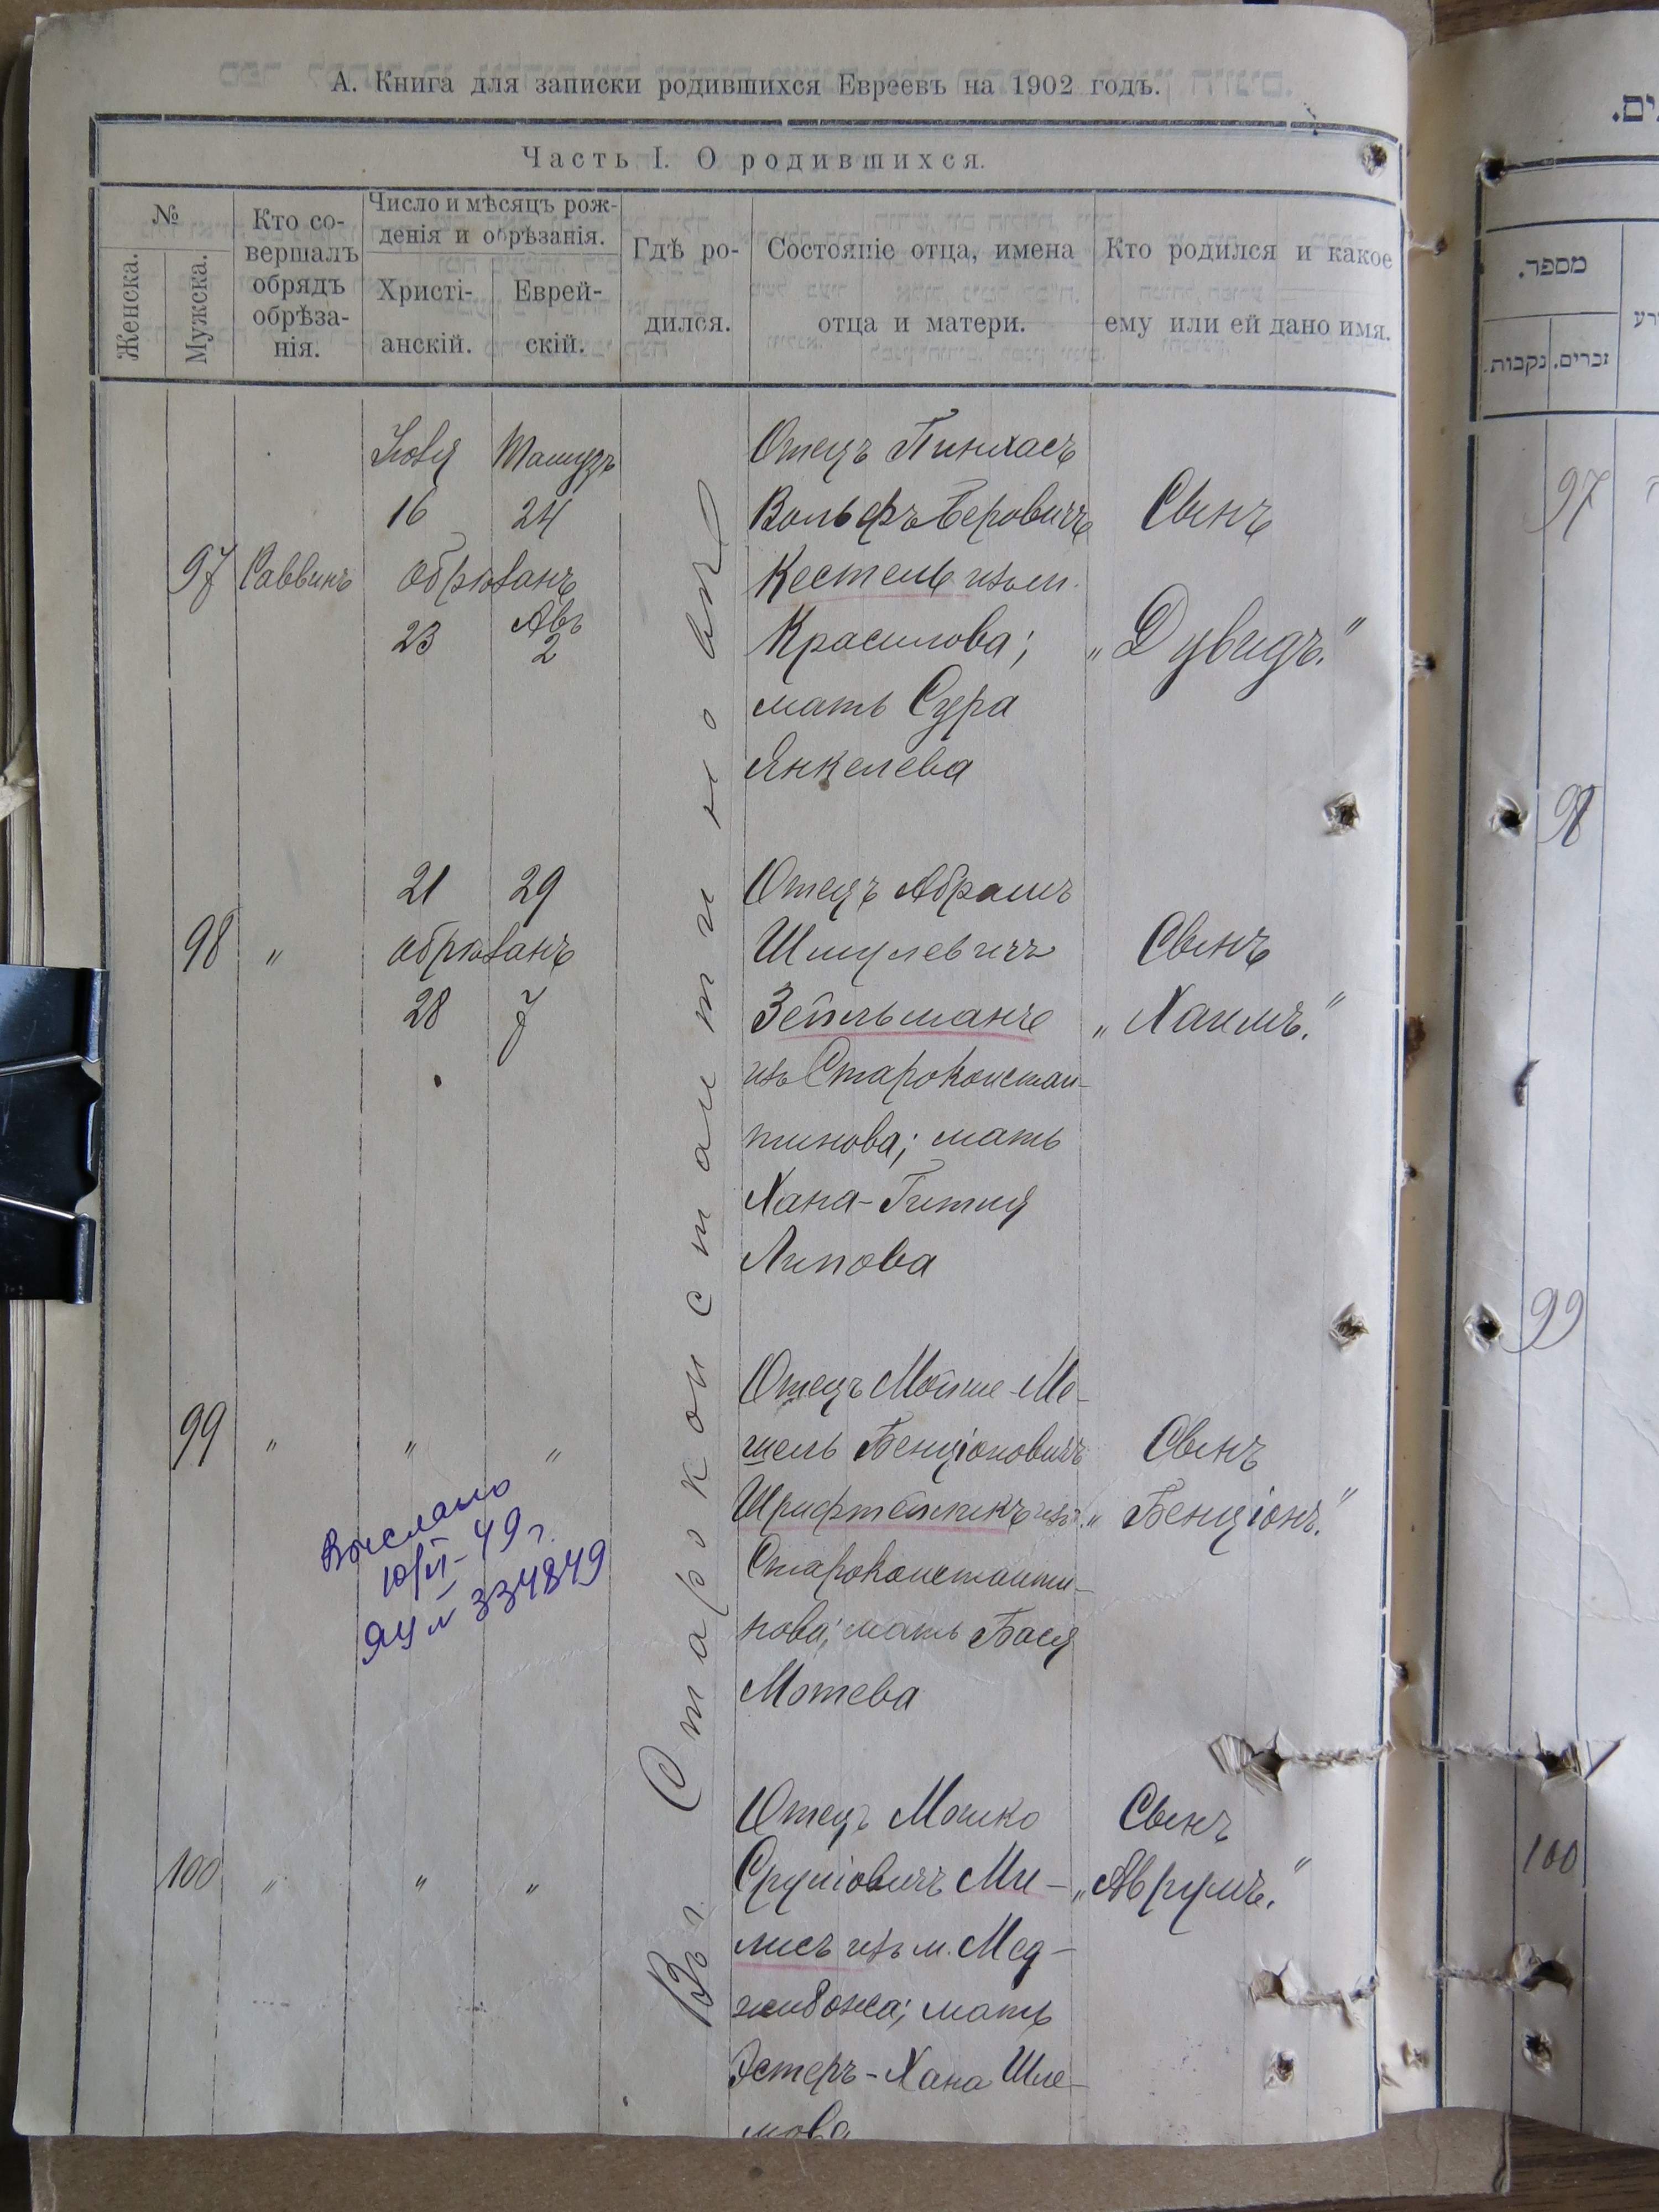 А. Книга для записки родившихся Евреевъ на 1902 годъ.
Часть I. О родившихся.
№
Женска.
Мужска.
Кто со-
вершалъ
обрядъ
обрѣза-
нія.
Число и мѣсяцъ рож-
денія и обрѣзанія.
Христі-
анскій.
Еврей-
скій.
Гдѣ ро-
дился.
Состояніе отца, имена
отца и матери.
Кто родился и какое
ему или ей дано имя.
97
Раввинъ
Іюля
Тамузъ
16
24
обрѣзанъ
23
Авъ
2
Въ г. Староконстантиновѣ
Отецъ Пинхасъ
Вольфъ Беровичъ
Кестель изъ м.
Красилова;
мать Сура
Янкелева
Сынъ
„Дувидъ."
98
"
21
29
обрѣзанъ
28
7
Отецъ Абрамъ
Шмулевичъ
Зейльманъ
изъ Староконстан-
тинова; мать
Хана-Гитля
Липова
Сынъ
„Хаимъ."
99
"
"
"
Отецъ Мойше-Ме-
шель Бенціоновичъ
Шрифтейликъ изъ
Староконстанти-
нова; мать Бася
Мотева
Сынъ
„Бенціонъ."
Выслано
10/VI-49 г.
ЯЦ № 334849
100
"
"
"
Отецъ Мошко
Сруліовичъ Ми-
лисъ изъ м. Мед-
жибожа; мать
Эстеръ-Хана Шле-
мова
Сынъ
„Аврумъ."
ים.
מספר.
נקבות.
זכרים.
97
98
99
100